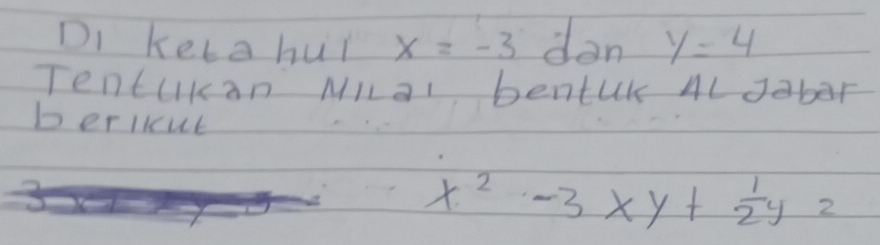 Di ketahui x = -3 dan y = 4
Tentukan Nilai bentuk ALJabar
berikut
x² - 3xy + ½y 2